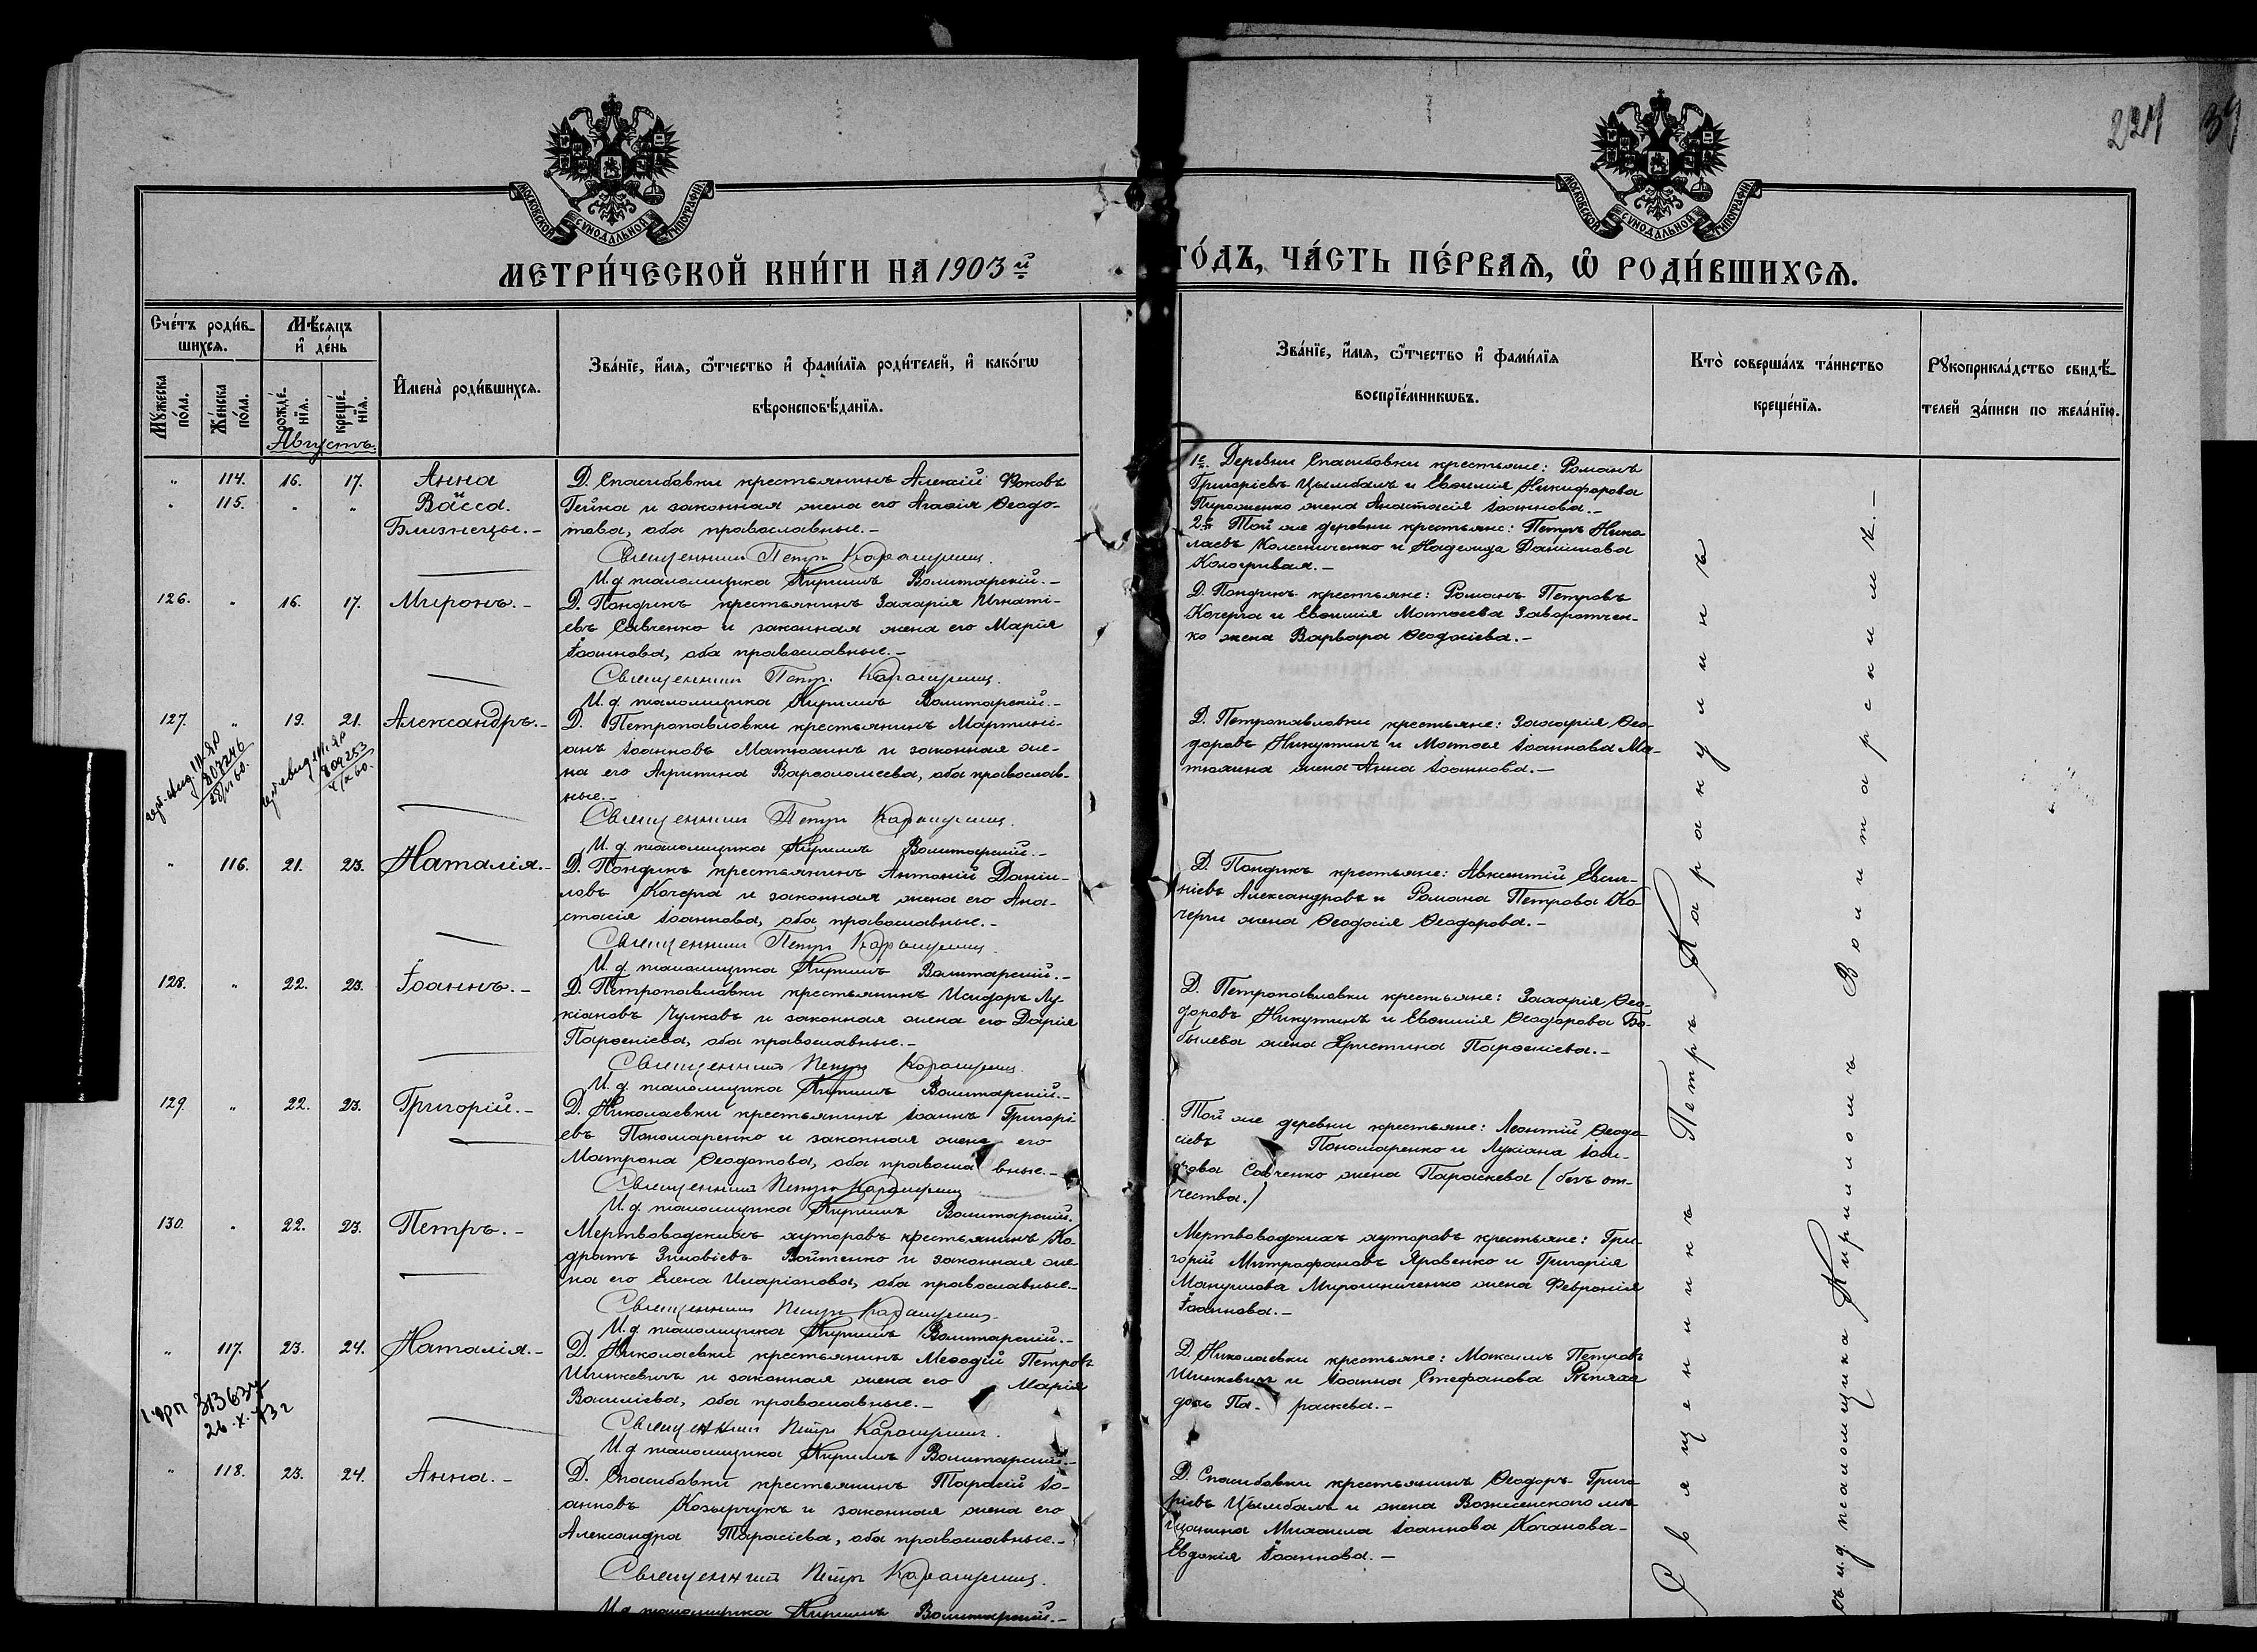 224
МОСКОВСКОЙ СѴНОДАЛЬНОЙ ТИПОГРАФІИ
МОСКОВСКОЙ СѴНОДАЛЬНОЙ ТИПОГРАФІИ
МЕТРИ́ЧЕСКОЙ КНИ́ГИ НА 1903й
ГО́ДЪ, ЧА́СТЬ ПЕ́РВАѦ, Ѽ РОДИ́ВШИХСѦ.
Сче́тъ роди́в-
шихсѧ.
Мꙋ́жеска по́ла.
Же́нска по́ла.
Мѣ́сѧцъ
и҆ де́нь
рожде́-нїѧ.
креще́-нїѧ.
И҆мена̀ роди́вшихсѧ.
Зва́нїе, и҆́мѧ, ѻ҆́тчество и҆ фами́лїѧ роди́телей, и҆ како́гѡ
вѣроисповѣ́данїѧ.
Зва́нїе, и҆́мѧ, ѻ҆́тчество и҆ фами́лїѧ
воспрїе́мникѡвъ.
Кто̀ соверша́лъ та́инство
креще́нїѧ.
Рꙋкоприкла́дство свидѣ́-
телей за́писи по жела́нїю.
Августъ.
" 114. 16. 17. Анна
" 115. " " и Васса.
Близнецы.-
Д. Спасибовки крестьянинъ Алексій Фоковъ
Гейка и законная жена его Агафія Ѳеодо-
това, оба православные.-
Священник Петръ
И. д. псаломщика Кирилъ Волитарскій.-
1е. Деревни Спасибовки крестьяне: Романъ
Григоріевъ Цымбалъ и Евѳимія Никифорова
жена Анастасія Іоаннова.-
2е Той же деревни крестьяне: Петръ Нико-
лаевъ Колесниченко и Надежда Даніилова
Кологривая.-
126. " 16. 17. Миронъ.-
Д. Пондикъ крестьянинъ Захарія Игнаті-
евъ Савченко и законная жена его Марія
Іоаннова, оба православные.-
Священник Петръ
И. д. псаломщика Кирилъ Волитарскій.-
Д. Пондикъ крестьяне: Романъ Петровъ
Кочерга и Евѳимія Матѳеева Заворотчен-
ко жена Варвара Ѳеодосіева.-
127. " 19. 21. Александръ.-
Д. Петропавловки крестьянинъ Мартині-
анъ Іоанновъ Матюхинъ и законная же-
на его Акилина Варѳоломеева, оба православ-
ные.-
Священник Петръ
И. д. псаломщика Кирилъ Волитарскій.-
Д. Петропавловки крестьяне: Захарія Ѳео-
доровъ Никутинъ и Матѳея Іоаннова Ма-
тюхина жена Анна Іоаннова.-
" 116. 21. 23. Наталія.-
Д. Пондикъ крестьянинъ Антоній Даніи-
ловъ Кочерга и законная жена его Ана-
стасія Іоаннова, оба православные.-
Священник Петръ
И. д. псаломщика Кирилъ Волитарскій.-
Д. Пондикъ крестьяне: Авксентій Евги-
ніевъ Александровъ и Романа Петрова Ко-
черги жена Ѳеодосія Ѳеодорова.-
128. " 22. 23. Іоаннъ.-
Д. Петропавловки крестьянинъ Исидоръ Лу-
кіановъ Чулковъ и законная жена его Дарія
Парѳеніева, оба православные.-
Священник Петръ
И. д. псаломщика Кирилъ Волитарскій.-
Д. Петропавловки крестьяне: Захарія Ѳео-
доровъ Никутинъ и Евѳимія Ѳеодорова Бо-
былева жена Христина Парѳеніева.-
129. " 22. 23. Григорій.-
Д. Николаевки крестьянинъ Іоаннъ Григорі-
евъ Пономаренко и законная жена его
Матрона Ѳеодотова, оба правосла вные.-
Священник Петръ
И. д. псаломщика Кирилъ Волитарскій.
Той же деревни крестьяне: Леонтій Ѳеодо-
сіевъ Пономаренко и Лукіана
Савченко жена Параскева (безъ от-
чества.)
130. " 22. 23. Петръ.-
Мертвоводскихъ хуторовъ крестьянинъ Ко-
дратъ Зиновіевъ Войтенко и законная же-
на его Елена Иларіонова, оба православные.-
Священник Петръ
И. д. псаломщика Кирилъ Волитарскій.-
Мертвоводскихъ хуторовъ крестьяне: Гри-
горій Митрофановъ Яровенко и Григорія
Мануилова Мирошниченко жена Февронія
Іоаннова.-
" 117. 23. 24. Наталія.-
Д. Николаевки крестьянинъ Меѳодій Петровъ
Шинкевичъ и законная жена его Марія
Василіева, оба православные.-
Священник Петръ
И. д. псаломщика Кирилъ Волитарскій.-
Д. Николаевки крестьяне: Максимъ Петровъ
Шинкевичъ и Іоанна Стефанова Рѣпяха
дочь Па- раскева.-
313637
26.X.73г
" 118. 23. 24. Анна.-
Д. Спасибовки крестьянинъ Тарасій Іо-
анновъ Козырчукъ и законная жена его
Александра Тарасіева, оба православные.-
Священник Петръ
И. д. псаломщика Кирилъ Волитарскій.-
Д. Спасибовки крестьянинъ Ѳеодоръ Григо-
ріевъ Цымбалъ и жена Вознесенского мѣ-
щанина Михаила Іоаннова Кочанова-
Евдокія Іоаннова.-
Священникъ Петръ
съ и.д. псаломщика Кирилломъ